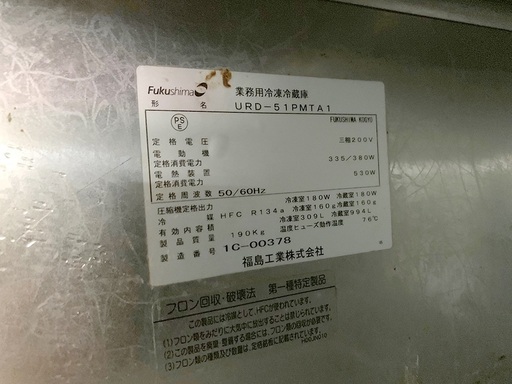 Fukushima
業務用冷凍冷蔵庫
形 名 URD-51PMTA1
PS E
FUKUSHIMA KOGYO
定格電圧 三相200V
電動機
定格消費電力 335/380W
電熱装置
定格消費電力 530W
定格周波数 50/60Hz
圧縮機定格出力 冷凍室180W 冷蔵室180W
冷媒 HFC R134a 冷凍室160g 冷蔵室160g
有効内容積 冷凍室309L 冷蔵室994L
製品質量 190Kg 温度ヒューズ動作温度 76℃
製造番号 1C-00378
福島工業株式会社
フロン回収・破壊法 第一種特定製品
この製品には冷媒として、HFCが使われています。
(1)フロン類をみだりに大気中に放出することは禁じられています。
(2)この製品を廃棄・整備する場合には、フロン類の回収が必要です。
(3)フロン類の種類及び数量は、定格銘板に記載されています。